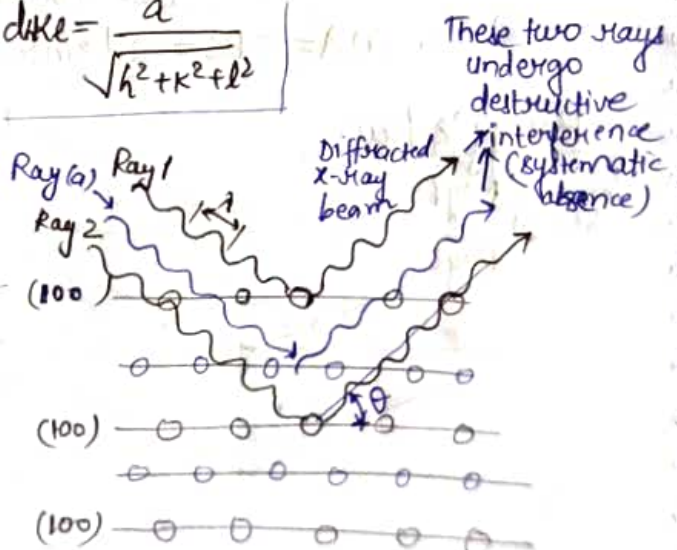 dhkl = a / √h²+k²+l²
These two rays
undergo
destructive
interference
(systematic
absence)
Diffracted
x-ray
beam
Ray(a)
Ray 1
λ
Ray 2
(100)
θ
(100)
(100)